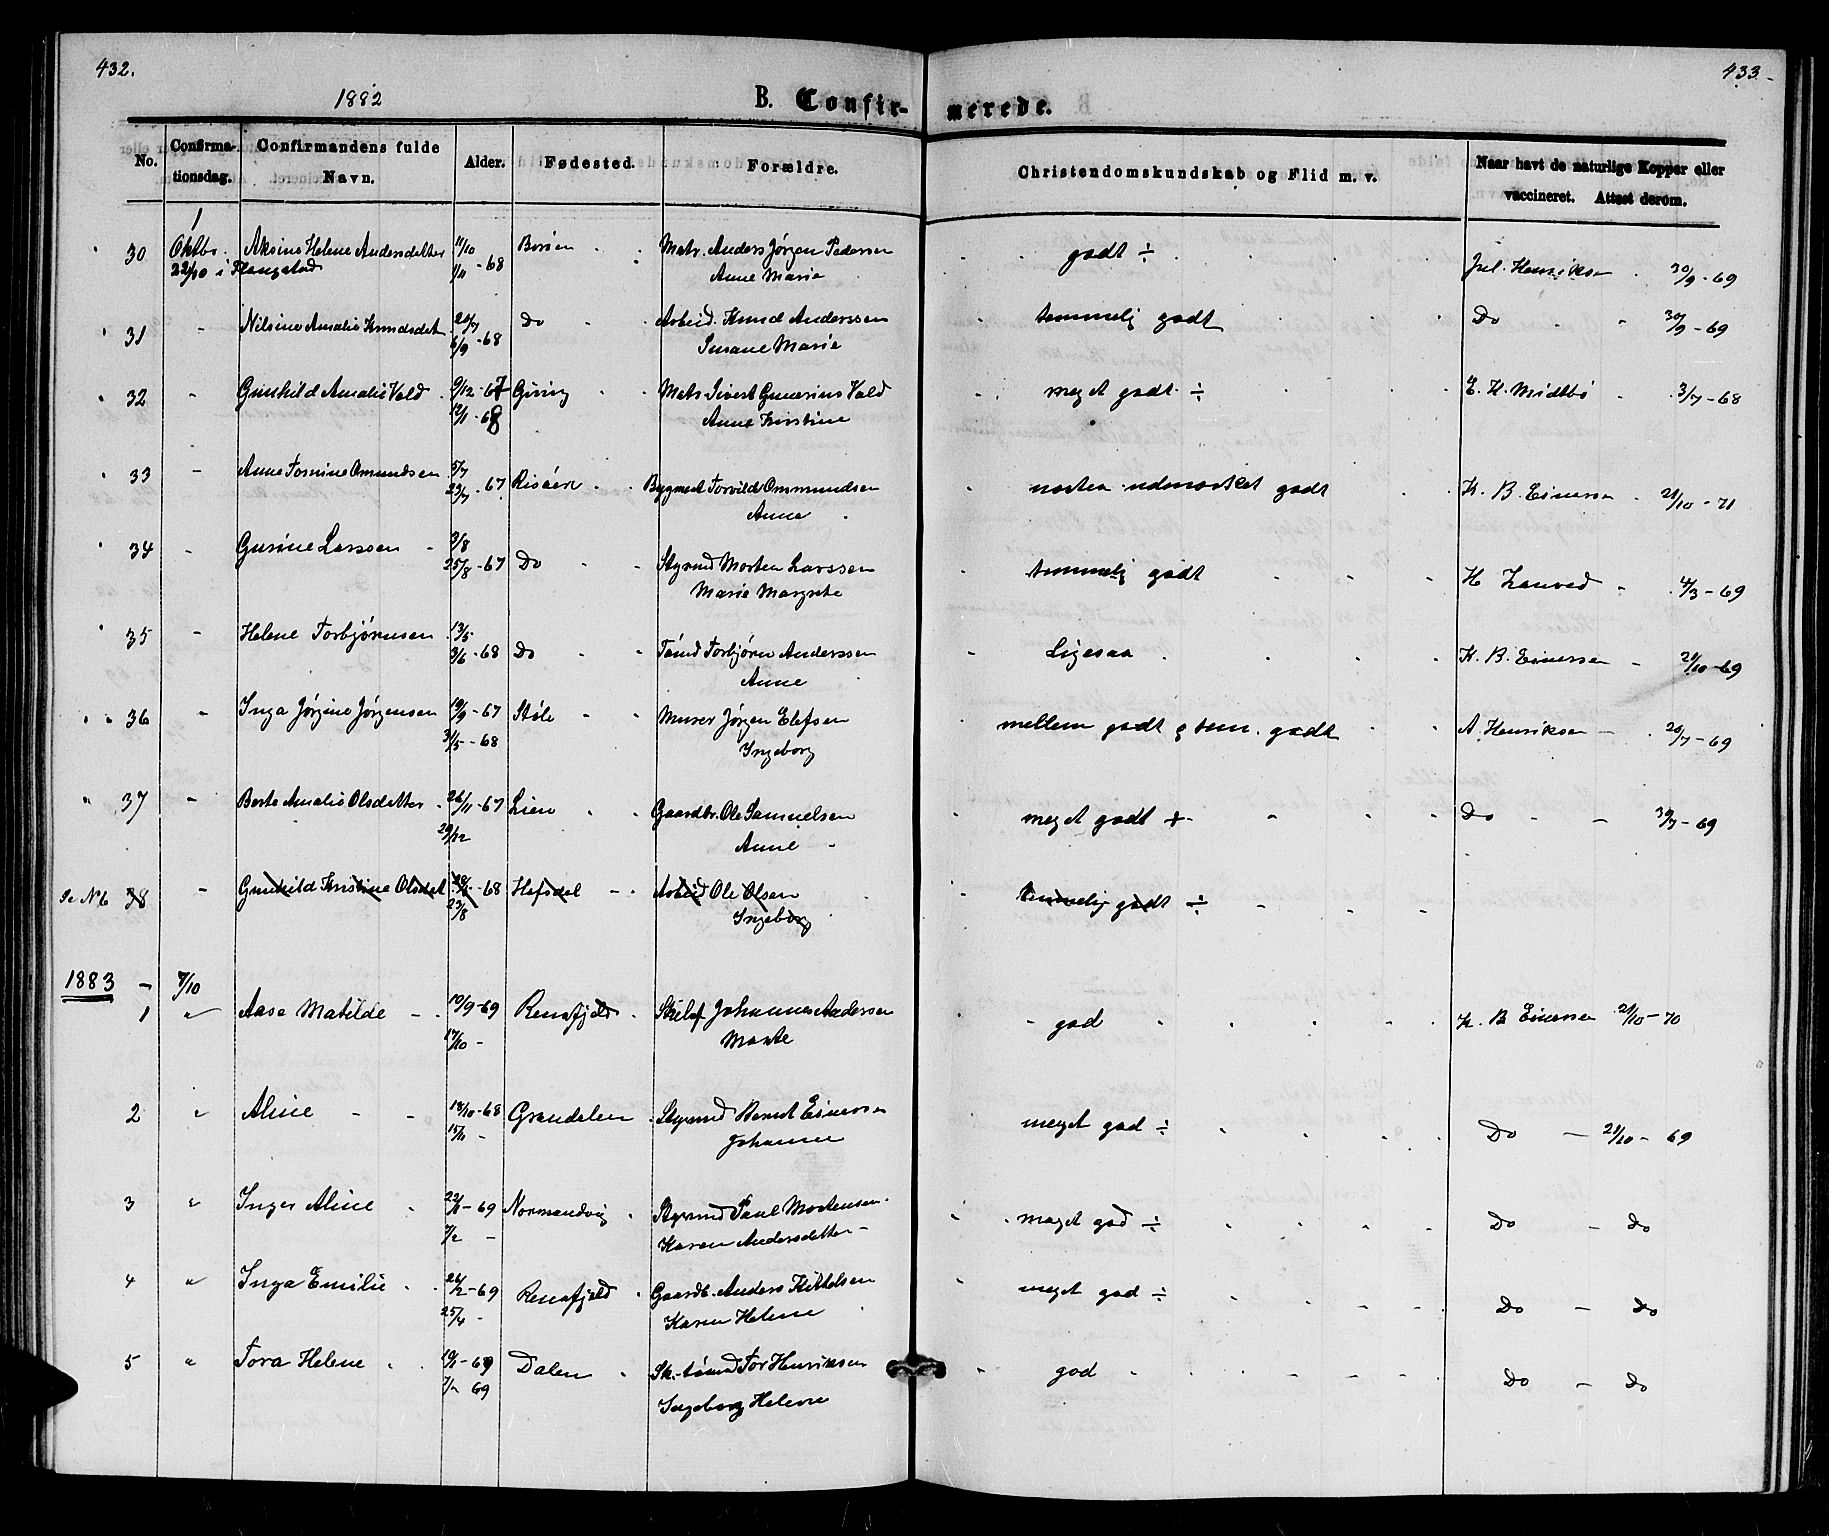 432.
433.
1882
B. Confir-
merede.
No.
Confirma-
tionsdag.
Confirmandens fulde
Navn.
Alder.
Fødested.
Forældre.
Christendomskundskab og Flid m. v.
Naar havt de naturlige Kopper eller
vaccineret. Attest derom.
1
30 Oktbr. Aksine Helene Andersdatter 11/10 Borøen Matr. Anders Jørgen Pedersen godt ÷ Jul. Henriksen 30/9 - 69
22/10 i Flangstad 1/11 - 68 Anne Marie
31 - Nilsine Amalie Knudsdat. 20/7 Do Arbeid. Knud Anderssen temmelig godt Do 30/9 - 69
6/9 - 68 Susane Marie
32 - Gunhild Amalie Vold 9/12 - 67 Gjøing Matr. Sivert Gunerius Vold meget godt ÷ E. K. Midtbö 3/7 - 68
12/1 - 68 Anne Kirstine
33 - Anne Tomine Omundsen 5/7 Risøen Bygmest. Torvild Ommundsen næsten udmærket godt K. B. Einersen 21/10 - 71
23/7 - 67 Anne
34 - Gusine Larssen 3/8 Do Styrmd Morten Larssen temmelig godt H. Lauved 4/3 - 69
25/8 - 67 Marie Margrete
35 - Helene Torbjørnsen 13/5 Do Tømd Torbjørn Anderssen Ligesaa K. B. Einersen 21/10 - 69
3/6 - 68 Anne
36 - Inga Jørgine Jørgensen 19/9 - 67 Støle Murer Jørgen Elefsen mellem godt og tem. godt A. Henriksen 20/7 - 69
31/5 - 68 Ingeborg
37 - Berte Amalie Olsdatter 26/11 - 67 Lien Gaardbr. Ole Samuelsen meget godt + Do 30/7 - 69
29/12 Anne
Se N 6 38 - Gunhild Kristine Olsdat. - 68 Hefsdal Arbeid Ole Olsen temmelig godt ÷
23/8 Ingeborg
1883 - 7/10
1 " Aase Matilde 10/9 - 69 Rensfjeld Skibsf. Johannes Andersen god K. B Einersen 21/10 - 70
17/10 - Marte
2 " Aline 18/10 - 68 Grændalen Styrmd Bernt Einersen meget god ÷ Do - 21/10 - 69
15/11 - Johanne
3 " Inger Aline 22/1 - 69 Normandvig Styrmd Paul Mortensen meget god ÷ Do - Do
7/2 - Karen Andersdatter
4 " Inga Emilie 26/2 - 69 Rensfjeld Gaardb. Anders Kittelsen meget god ÷ Do - Do
25/4 - Karen Helene
5 " Tora Helene 10/1 - 69 Dalen Sk.tømmd Tor Henriksen god Do - Do
7/2 69 Ingeborg Helene